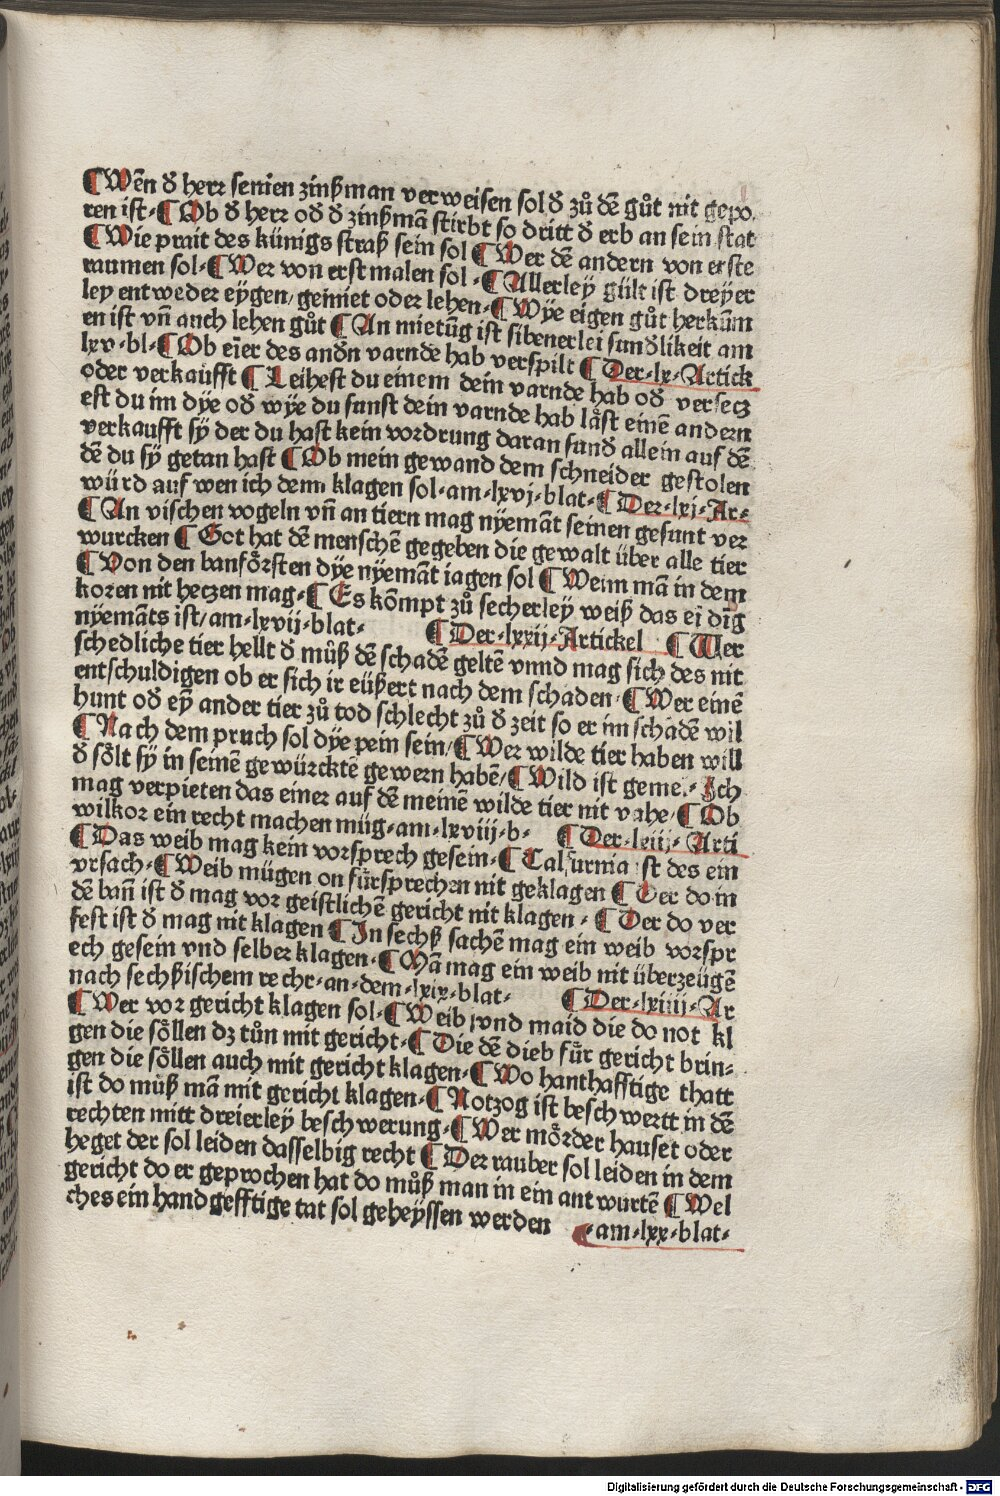 ¶Wen̄ đ herr senien zinßman verweisen sol đ zů dē gůt nit gepo
ren ist·¶Ob đ herr ođ đ zinßmā stirbt so dritt đ erb an sein stat
¶Wie prait des künigs straß sein sol ¶Wer dē andern von erste
raumen sol·¶Wer von erst malen sol·¶Allerley gült ist dreÿer
ley entweder eÿgen/ gemiet oder lehen·¶Wÿe eigen gůt herkūm
en ist vn̄ auch lehen gůt ¶An mietūg ist sibenerlei sunđlikeit am
lxv·bl·¶Ob eīer des anđn varnde hab verspilt ¶Der·lx·Artick
oder verkaufft ¶Leihest du einem dein varnde hab ođ versecz
est du im dÿe ođ wÿe du sunst dein varnde hab låst einē andern
verkaufft sÿ der du hast kein vordrung daran sunđ allein auf dē
dē du sÿ getan hast ¶Ob mein gewand dem schneider gestolen
würd auf wen ich dem klagen sol·am·lxvj·blat·¶Der·lxj·Ar·
¶An vischen vogeln vn̄ an tiern mag nÿemāt seinen gesunt ver
wurcken ¶Got hat dē menschē gegeben die gewalt über alle tier
¶Von den banfőrsten dÿe nÿemāt iagen sol ¶Wenn mā in dem
koren nit heczen mag·¶Es kōmpt zů secherleÿ weiß das ei dīg
nÿemāts ist/am·lxvij·blat· ¶Der·lxxij·Artickel ¶Wer
schedliche tier hellt đ můß dē schadē geltē vnnd mag sich des nit
entschuldigen ob er sich ir eüßert nach dem schaden·¶Wer einē
hunt ođ eÿ ander tier zů tod schlecht zů đ zeit so er im schadē wil
¶Nach dem pruch sol dÿe pein sein/¶Wer wilde tier haben will
đ sőlt sÿ in seinē gewürcktē gewern habē/¶Wild ist geme·Ich
mag verpieten das einer auf dē meinē wilde tier nit vahe·¶Ob
wilkor ein recht machen müg·am·lxviij·b· ¶Der·leiij·Arti
¶Das weib mag kein vorsprech gesein·¶Calfurnia ist des ein
vrsach·¶Weib mügen on fürsprechen nit geklagen ¶Der do in
dē bañ ist đ mag vor geistlichē gericht nit klagen·¶Der do ver
fest ist đ mag nit klagen ¶In sechß sachē mag ein weib vorspr
ech gesein vnd selber klagen·¶Mā mag ein weib nit überzeügē
nach sechßischem recht·an·dem·lxix·blat· ¶Der·lxiiij·Ar
¶Wer vor gericht klagen sol·¶Weib vnd maid die do not kl
gen die sőllen dz tůn mit gericht·¶Die dē dieb fůr gericht brin·
gen die sőllen auch mit gericht klagen·¶Wo hanthafftige thatt
ist do můß mā mit gericht klagen·¶Notzog ist beschwertt in dē
rechten mitt dreierleÿ beschwerung·¶Wer mőrder hauset oder
heget der sol leiden dasselbig recht ¶Der rauber sol leiden in dem
gericht do er geprochen hat do můß man in ein antwurtē ¶Wel
ches ein handgefftige tat sol geheÿssen werden ¶·am·lxx·blat·
Digitalisierung gefördert durch die Deutsche Forschungsgemeinschaft - DFG